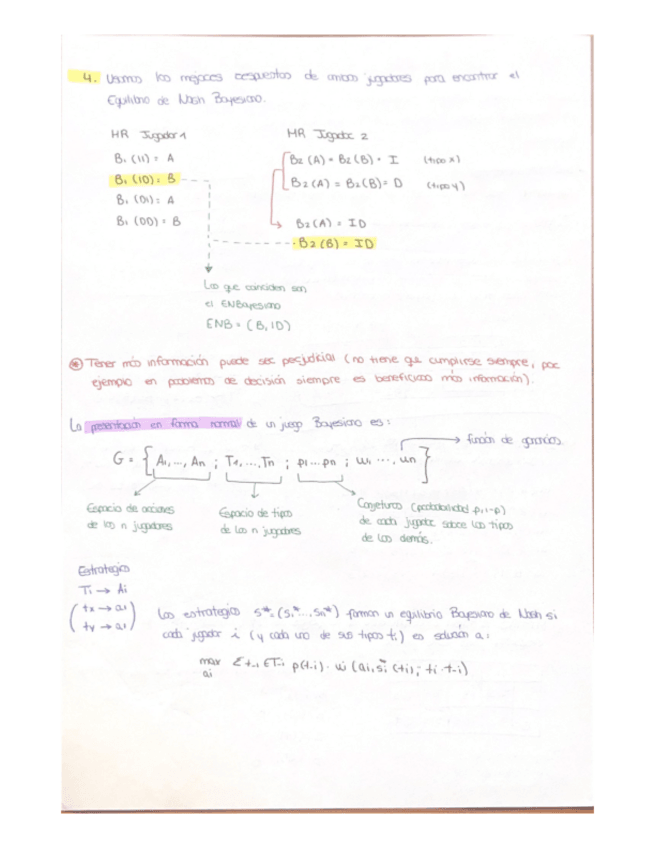 4. Usamos las mejores respuestas de ambos jugadores para encontrar el
Equilibrio de Nash Bayesiano.
MR Jugador 1
B₁ (II) = A
B₁ (ID) = B
B₁ (DI) = A
B₁ (DD) = B
MR Jugador 2
B₂ (A) = B₂ (B) = I (tipo x)
B₂ (A) = B₂ (B) = D (tipo y)
B₂ (A) = ID
B₂ (B) = ID
Los que coinciden son
el ENBayesiano
ENB = (B, ID)
* Tener más información puede ser perjudicial (no tiene que cumplirse siempre, por
ejemplo en problemas de decisión siempre es beneficioso más información).
La presentación en forma normal de un juego Bayesiano es:
G = { A₁, ..., An ; T₁, ..., Tn ; p₁ ... pn ; u₁, ..., un }
función de ganancias
Espacio de acciones
de los n jugadores
Espacio de tipos
de los n jugadores
Conjeturas (probabilidad p, 1-p)
de cada jugador sobre los tipos
de los demás.
Estrategia
Ti → Ai
tx → ai
ty → ai
Las estrategias s* = (s₁*, ..., sn*) forman un equilibrio Bayesiano de Nash si
cada jugador i (y cada uno de sus tipos ti) es solución a:
max Σ t-i ∈ T-i p(t-i) · ui (ai, s*-i (t-i); ti t-i)
ai